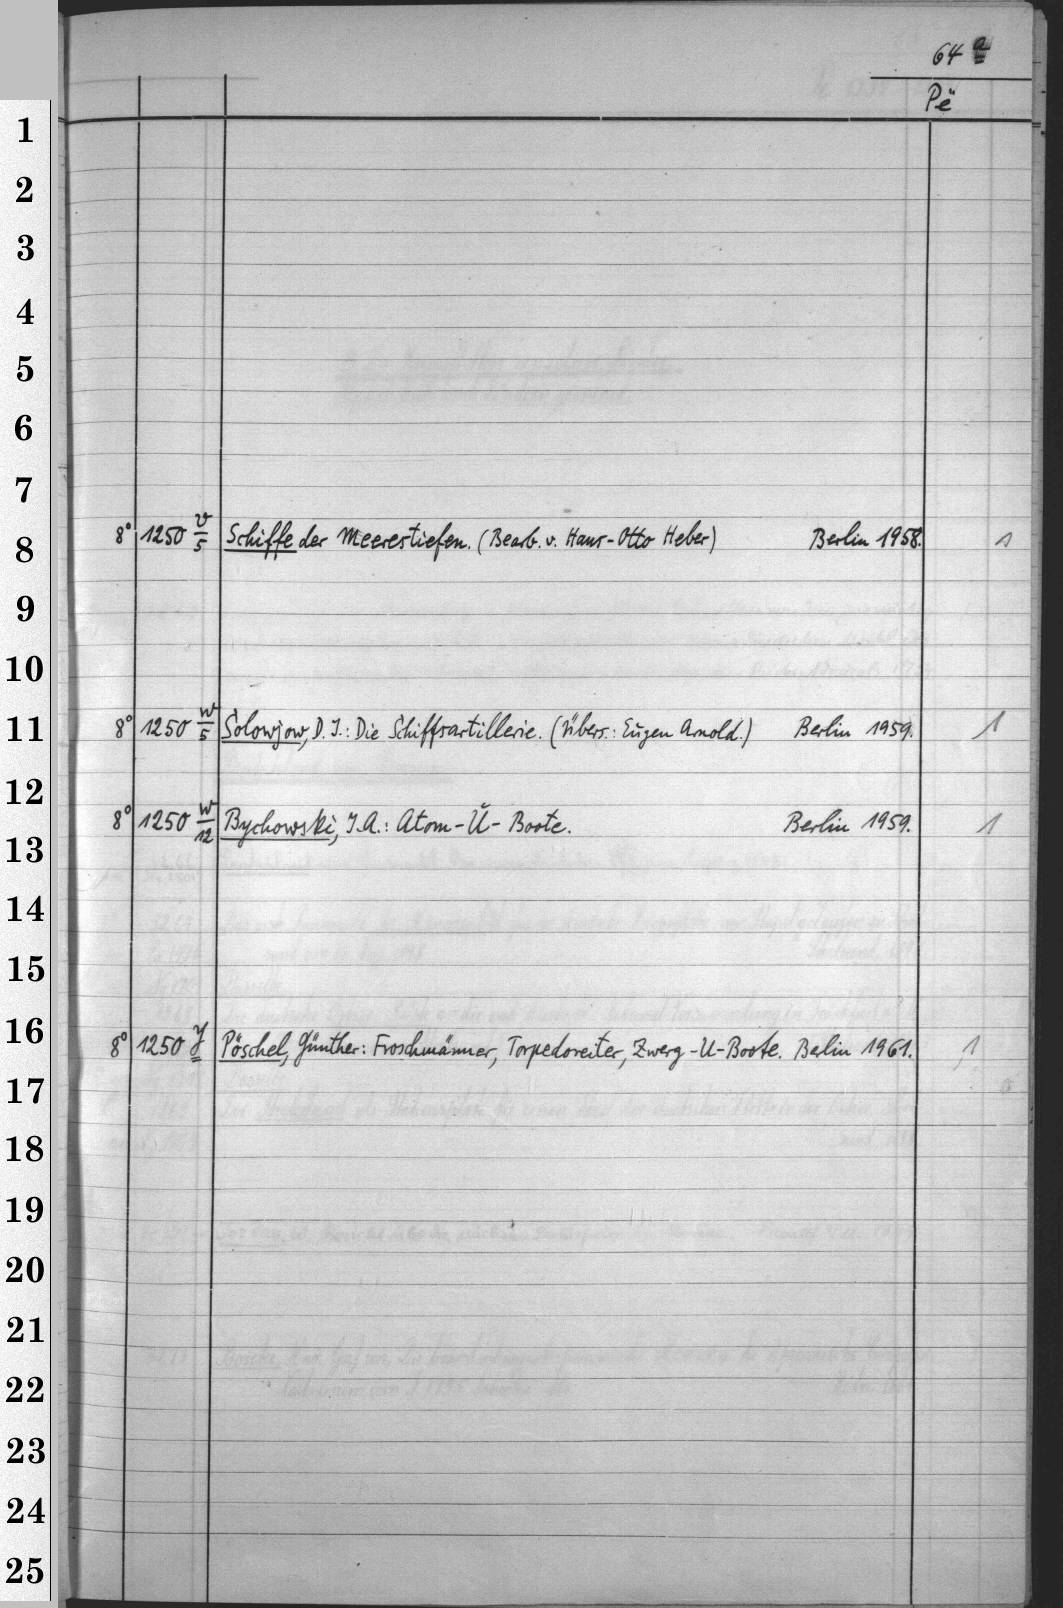 64 a
Pë
1
2
3
4
5
6
7
8° 1250 v/5 Schiffe der Meerestiefen. (Bearb. v. Hans-Otto Heber) Berlin 1958. 1
8
9
10
8° 1250 w/5 Solowjow, D. I.: Die Schiffsartillerie. (Übers.: Eugen Arnold.) Berlin 1959. 1
11
12
8° 1250 w/12 Bychowski, I. A.: Atom-U-Boote. Berlin 1959. 1
13
14
15
16
8° 1250 y Pöschel, Günther: Froschmänner, Torpedoreiter, Zwerg-U-Boote. Berlin 1961. 1
17
18
19
20
21
22
23
24
25